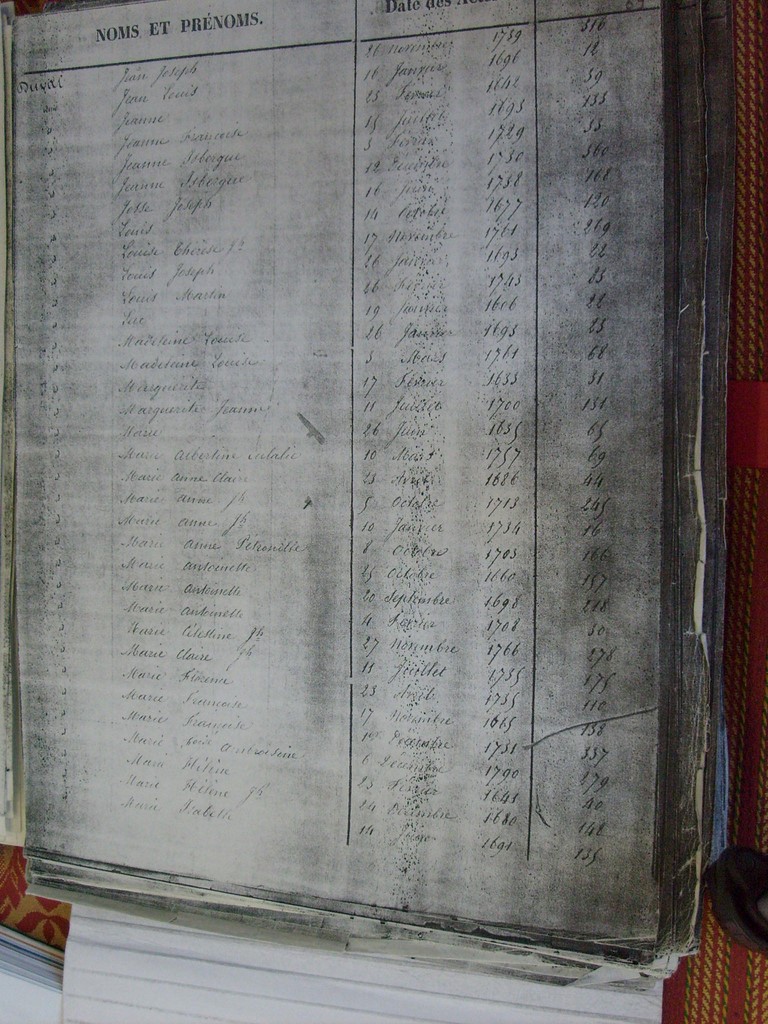 NOMS ET PRÉNOMS. Date des
Duval Jean Joseph 21 novembre 1739 316
Jean Louis 16 Janvier 1696 12
Jeanne 23 Février 1642 39
Jeanne Francoise 15 Juillet 1693 133
Jeanne Isbergue 3 Février 1729 33
Jeanne Isbergue 12 Decembre 1730 360
Josse Joseph 16 Juin 1738 168
Louis 14 Octobre 1677 120
Louise Thérèse jh 17 Novembre 1761 269
Louis Joseph 26 Janvier 1693 22
Louis Martin 26 Février 1743 23
Luc 19 Janvier 1606 22
Madeleine Louise 26 Janvier 1693 23
Madeleine Louise 3 Mars 1761 68
Marguerite 17 Février 1633 31
Marguerite Jeanne 11 Juillet 1700 131
Marie 26 Juin 1635 65
Marie Albertine Eulalie 10 Mars 1757 69
Marie anne Claire 23 Avril 1686 44
Marie anne jh 5 Octobre 1713 245
Marie anne jh 10 Janvier 1734 16
Marie anne Pétronille 8 Octobre 1703 166
Marie antoinette 25 Octobre 1660 157
Marie antoinette 20 Septembre 1698 218
Marie antoinette 4 Février 1708 30
Marie Célestine jh 27 Novembre 1766 278
Marie Claire jh 11 Juillet 1735 175
Marie Florence 23 Avril 1735 110
Marie Francoise 17 Novembre 1665 138
Marie Françoise 1er Decembre 1731 337
Marie Ambroisine 6 Decembre 1790 279
Marie Hélène 23 Février 1641 40
Marie Hélène jh 24 Decembre 1680 142
Marie Isabelle 14 1691 135